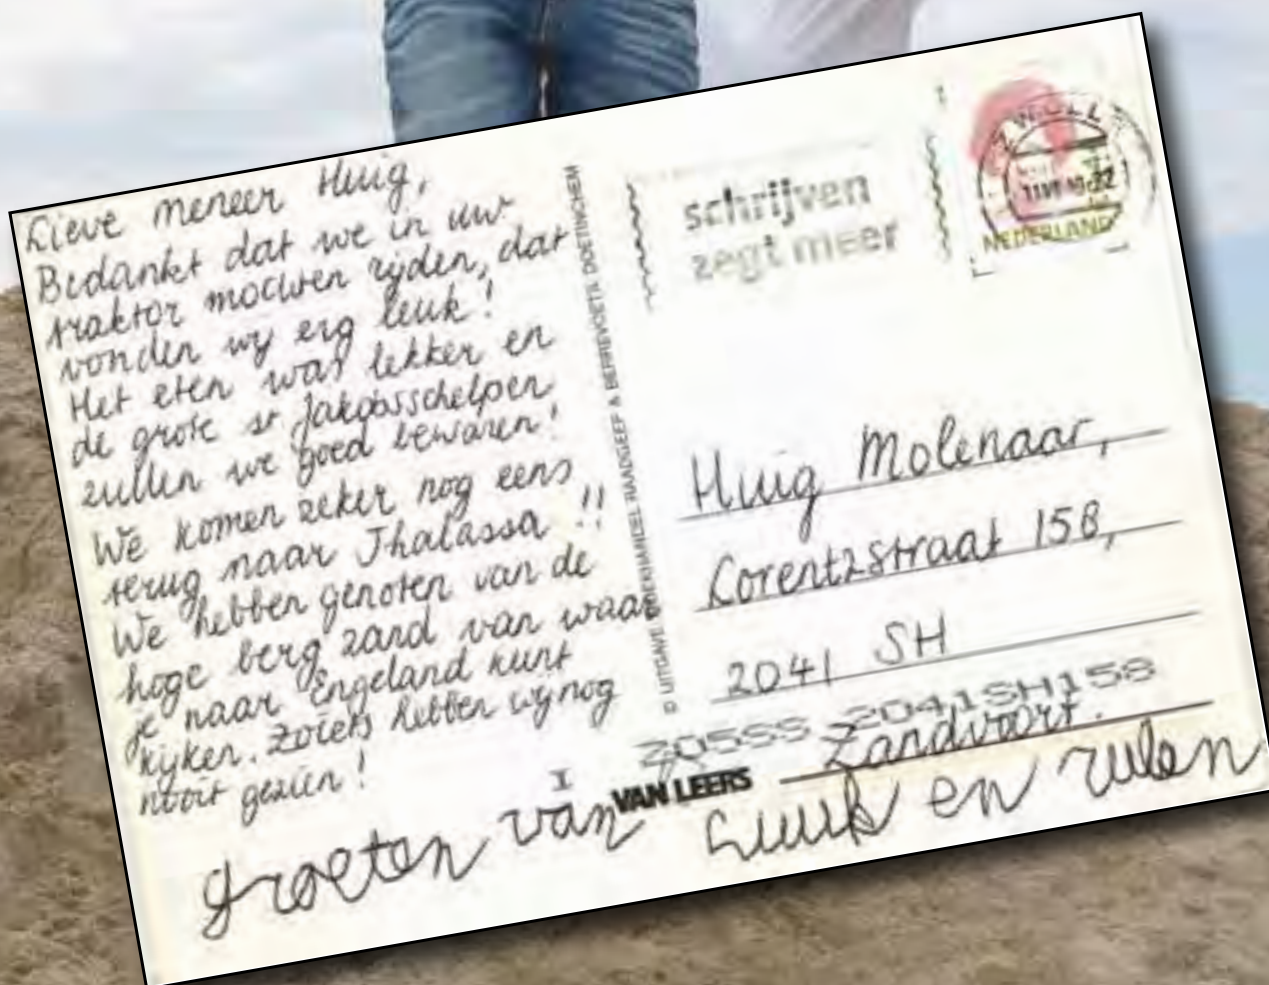 Lieve meneer Huig,
Bedankt dat we in uw
traktor mochten rijden, dat
vonden wij erg leuk!
Het eten was lekker en
de grote st Jakobsschelpen
zullen we goed bewaren!
We komen zeker nog eens
terug naar Thalassa !!
We hebben genoten van de
hoge berg zand van waar
je naar Engeland kunt
kijken. Zoiets hebben wij nog
nooit gezien!
groeten van Luuk en rulen
UITGAVE RAADGEEP & BERREVOETS, DOETINCHEM
schrijven
zegt meer
NEDERLAND
Huig Molenaar,
Lorentzstraat 158,
2041 SH
Zandvoort.
2041SH158
I
VAN LEERS